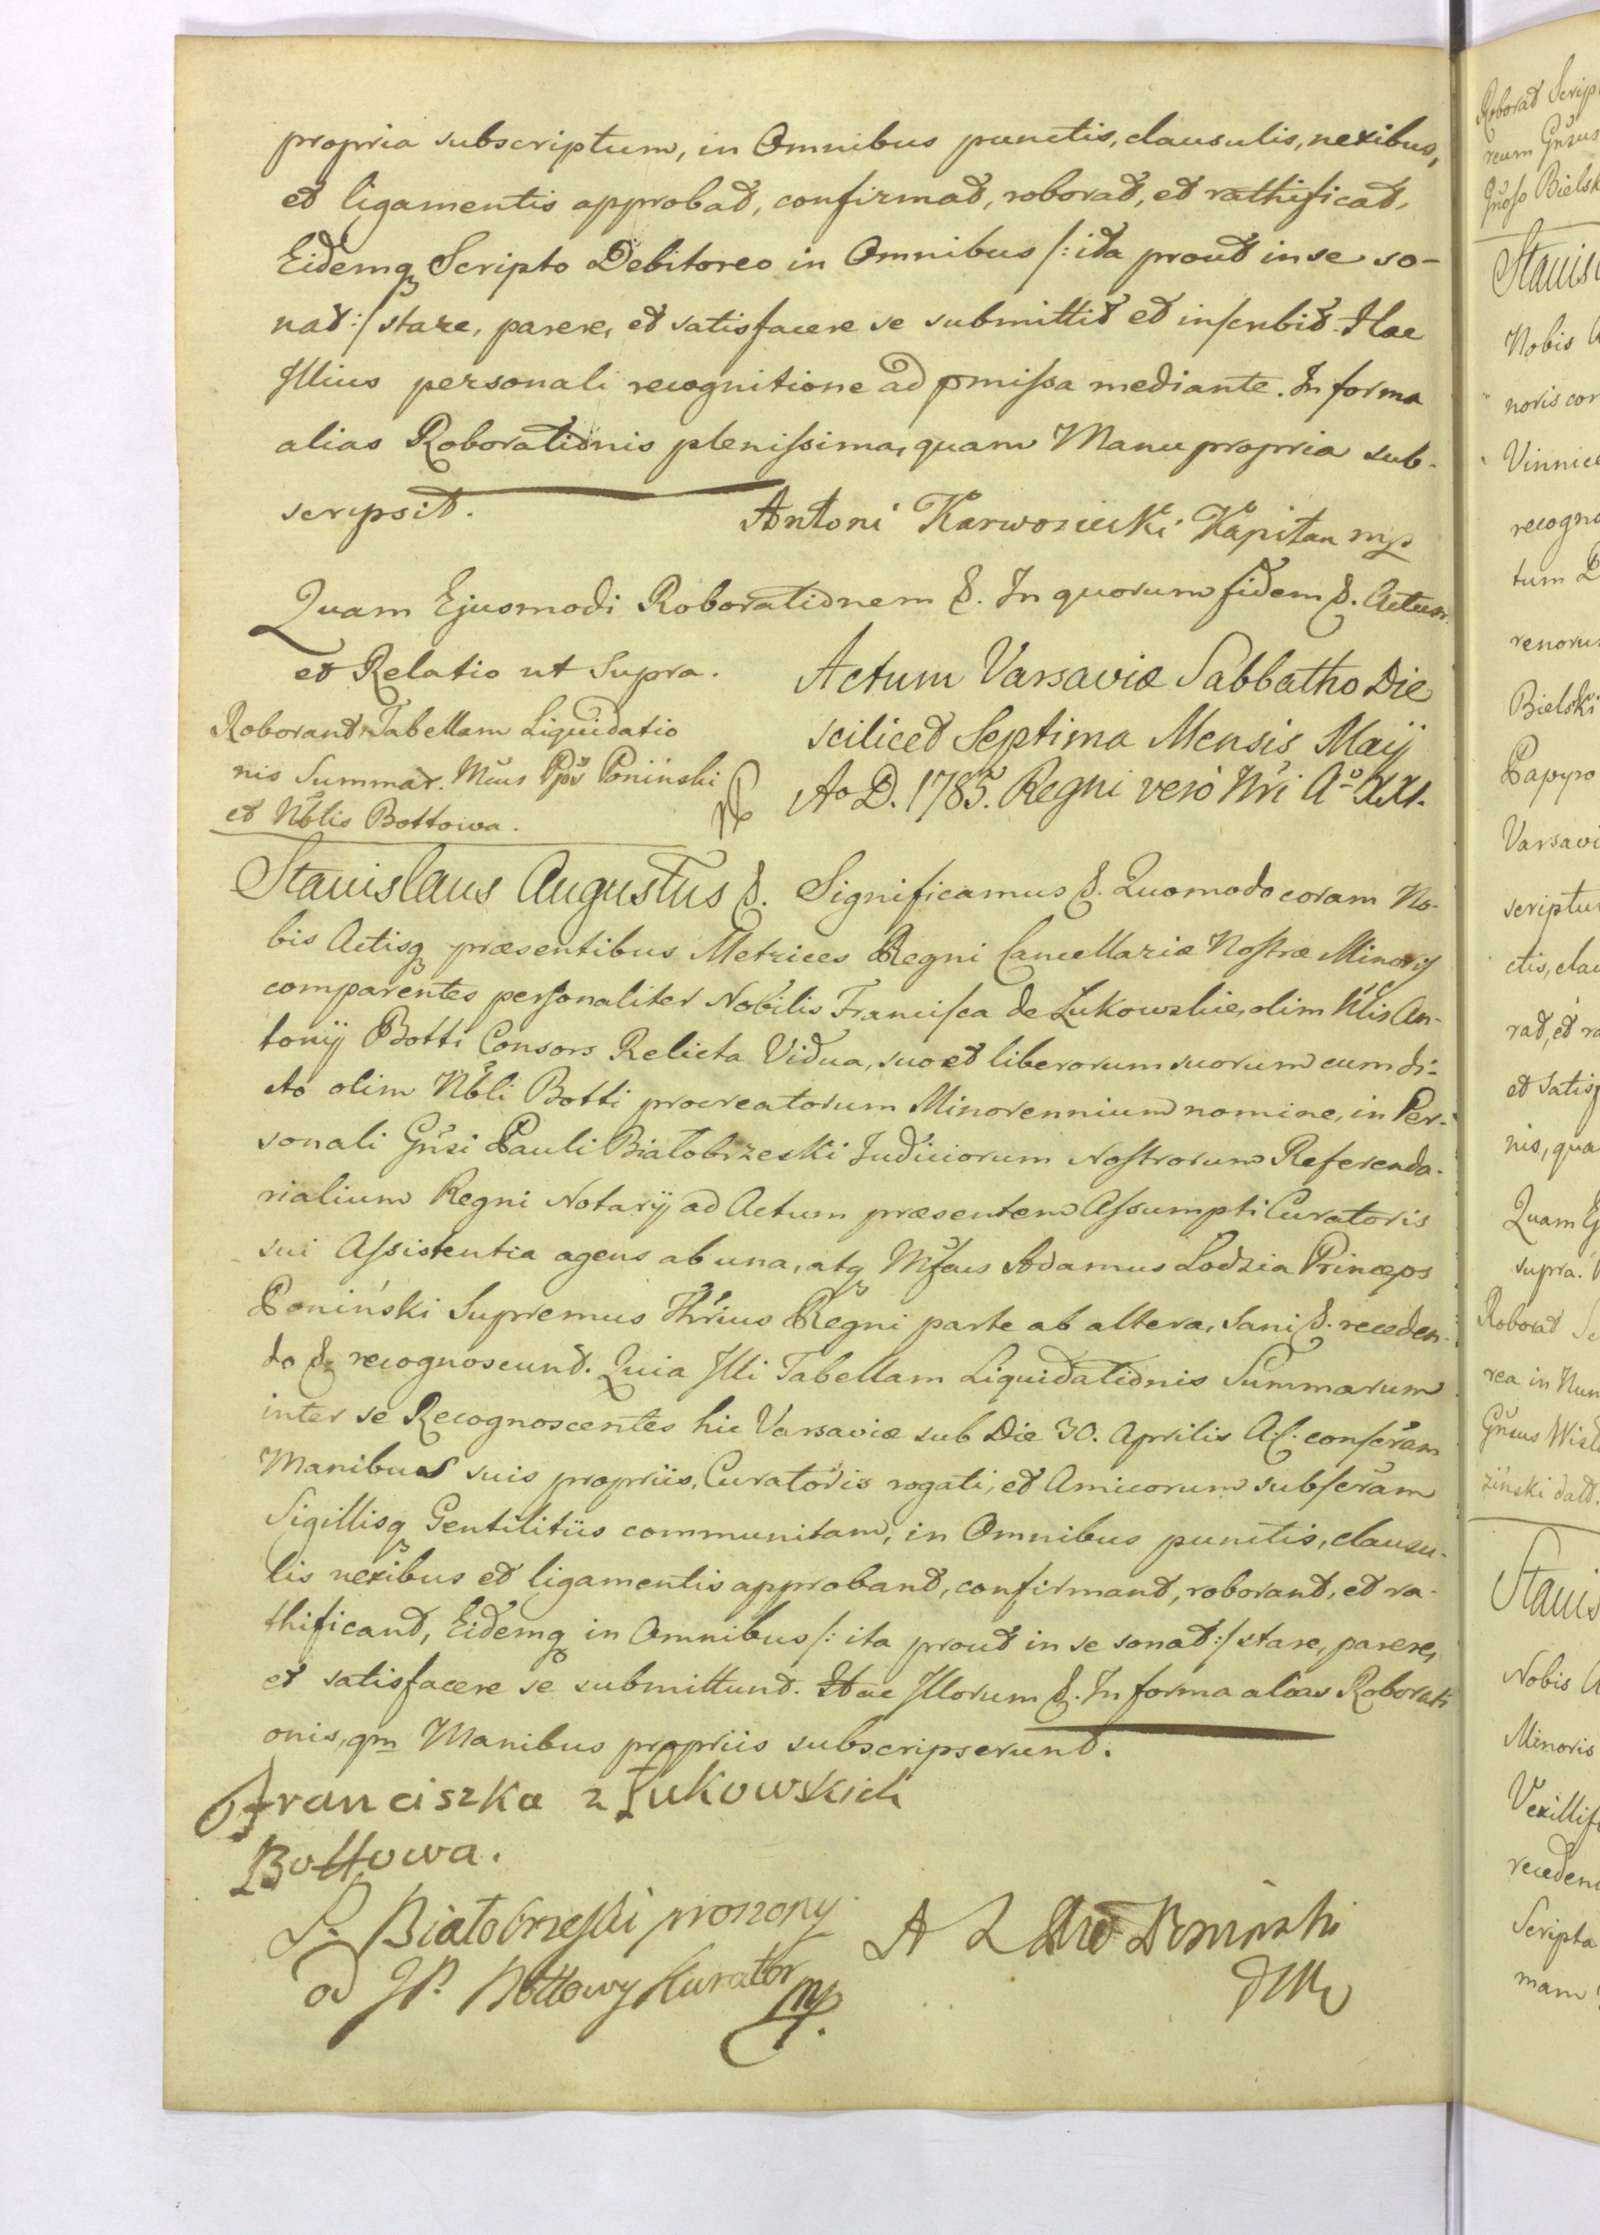 propria subscriptum, in Omnibus punctis, clausulis, nexibus,
et ligamentis approbat, confirmat, roborat, et rathificat,
Eidemq Scripto Debitoreo in Omnibus /: ita prout in se so-
nat :/ stare, parere, et satisfacere se submittit et inscribit. Hac
Illius personali recognitione ad pmissa mediante. In forma
alias Roborationis plenissima, quam Manu propria sub-
scripsit.
Antoni Karwosiecki Kapitan mp
Quam Ejusmodi Roborationem &. In quorum fidem &. Actum
et Relatio ut Supra.
Actum Varsaviæ Sabbatho Die
scilicet Septima Mensis Maij
Ao D. 1785. Regni vero Nri Ao XXI.
Roborant Tabellam Liquidatio
nis Summar. Mcus Pps Poniński
et Nblis Bottowa.
Stanislaus Augustus &. Significamus &. Quomodo coram No-
bis Actisq præsentibus Metrices Regni Cancellariæ Nostræ Minoris
comparentes personaliter Nobilis Francisca de Łukowskie, olim Nlis An-
tonij Botti Consors Relicta Vidua, suo et liberorum suorum cum di-
cto olim Nbli Botti procreatorum Minorennium nomine, in Per-
sonali Gnsi Pauli Białobrzeski Judiciorum Nostrorum Referenda-
rialium Regni Notarij ad Actum præsentem Assumpti Curatoris
sui Assistentia agens ab una, atq Mfcus Adamus Lodzia Princeps
Poniński Supremus Thrius Regni parte ab altera, Sani &. receden-
do & recognoscunt. Quia Illi Tabellam Liquidationis Summarum
inter se Recognoscentes hic Varsaviæ sub Die 30. Aprilis A.C. confcram
Manibus suis propriis, Curatoris rogati, et Amicorum subscram
Sigillisq Gentilitiis communitam, in Omnibus punctis, clausu-
lis nexibus et ligamentis approbant, confirmant, roborant, et ra-
thificant, Eidemq in Omnibus /: ita prout in se sonat :/ stare, parere,
et satisfacere se submittunt. Hac Illorum &. In forma alias Roborati
onis, qm Manibus propriis subscripserunt.
Franciszka z Łukowskich
Bottowa.
P. Białobrzeski proszony
od JP. Bottowy Kurator
mp.
A Ł Poniński
Roborat Scrip
reum Gnsus
Gnoso Bielsk
Stanis
Nobis
noris cor
Vinnice
recogno
tum
renoru
Bielski
Papyro
Varsavi
scriptu
ctis, clau
rat, et ra
et satis
nis, qua
Quam Ej
supra.
Roborat
rea in Nun
zinski dat.
Stanis
Nobis
Minoris
Vexillif
receden
Scripta
mam